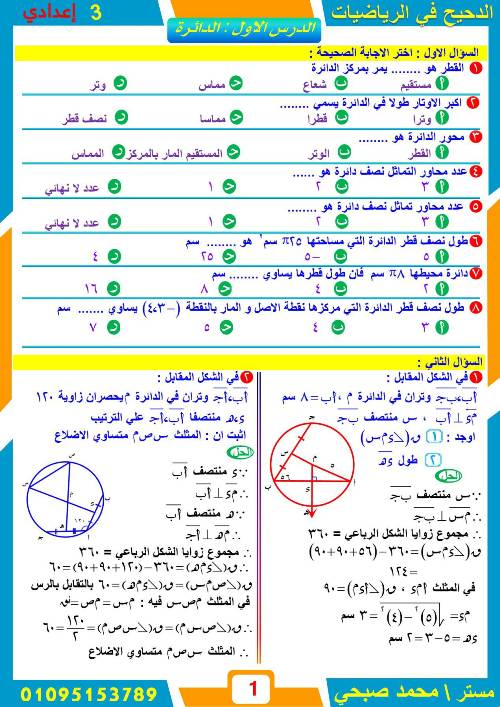 الدحيح في الرياضيات
3 إعدادي
الدرس الاول : الدائرة
السؤال الاول : اختر الاجابة الصحيحة :
١ القطر هو ........ يمر بمركز الدائرة
أ مستقيم ب شعاع ج مماس د وتر
٢ اكبر الاوتار طولا في الدائرة يسمي ........
أ وترا ب قطرا ج مماسا د نصف قطر
٣ محور الدائرة هو ........
أ القطر ب الوتر ج المستقيم المار بالمركز د المماس
٤ عدد محاور التماثل نصف دائرة هو ......
أ ٣ ب ٢ ج ١ د عدد لا نهائي
٥ عدد محاور تماثل نصف دائرة هو ........
أ ٣ ب ٢ ج ١ د عدد لا نهائي
٦ طول نصف قطر الدائرة التي مساحتها ٢٥π سم٢ هو ........ سم
أ ٥ ب -٥ ج ٢٥ د ٤
٧ دائرة محيطها ٨π سم فان طول قطرها يساوي ........ سم
أ ٢ ب ٤ ج ٨ د ١٦
٨ طول نصف قطر الدائرة التي مركزها نقطة الاصل و المار بالنقطة (-٣،٤) يساوي ....... سم
أ ٣ ب ٤ ج ٥ د ٧
السؤال الثاني :
١ في الشكل المقابل :
أب،بج وتران في الدائرة م ،أب=٨ سم
مء⊥أب ، س منتصف بج
اوجد : 1 ق(∠ءمس)
2 طول ءه
الحل
∵س منتصف بج
∴مس⊥بج
∴ مجموع زوايا الشكل الرباعي = ٣٦٠
ق(∠ءمس)=٣٦٠-(٥٦+٩٠+٩٠)
=١٢٤
في المثلث أمء ، ق(∠أءم)=٩٠
مء=√(٥)٢-(٤)٢ =٣ سم
ءه=٥-٣=٢ سم
٢ في الشكل المقابل :
أب،أج وتران في الدائرة م يحصران زاوية ١٢٠
ء،ه منتصفا أب،أج علي الترتيب
اثبت ان : المثلث س ص م متساوي الاضلاع
الحل
∵ء منتصف أب
∴مء⊥أب
∵ه منتصف أب
∴مه⊥أج
∴ مجموع زوايا الشكل الرباعي = ٣٦٠
∴ق(∠ءمه)=٣٦٠-(١٢٠+٩٠+٩٠)=٦٠
ق(∠صمس)=ق(∠ءمه)=٦٠ بالتقابل بالرس
في المثلث م ص س فيه : مس=مص=نق
∴ق(∠مصس)=ق(∠سصم)=١٢٠/٢=٦٠
∴ المثلث س ص م متساوي الاضلاع
مستر \ محمد صبحي
1
01095153789